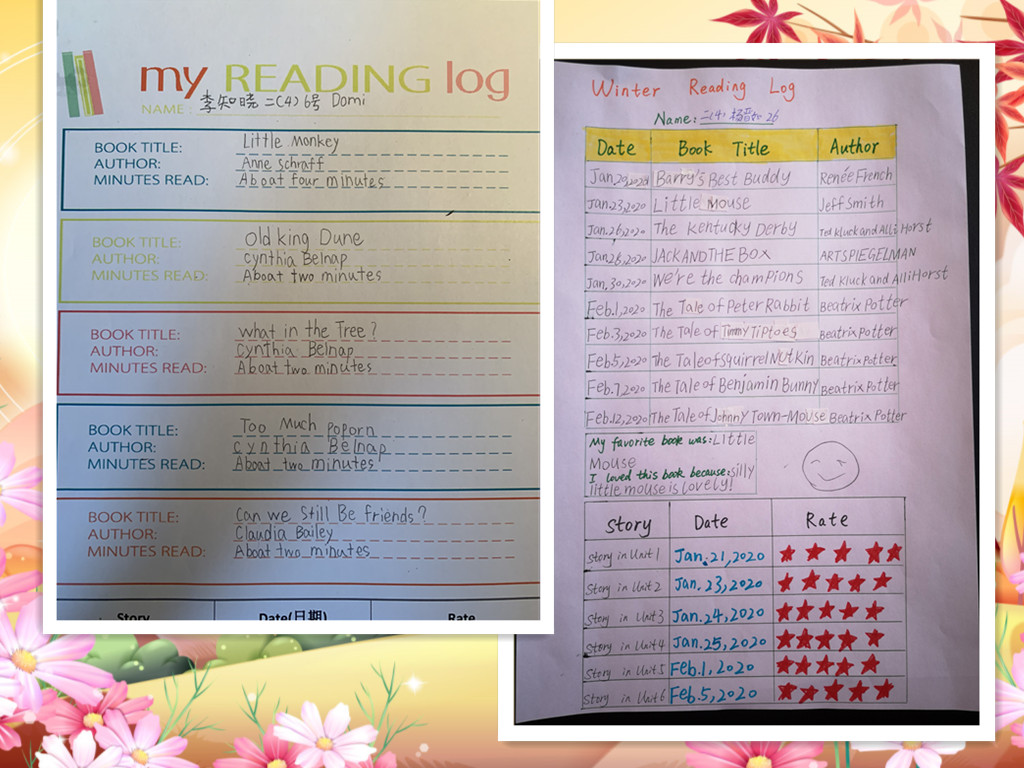 my READING log
NAME: 李知晓 二(4) 6号 Domi
BOOK TITLE: Little Monkey
AUTHOR: Anne Schraff
MINUTES READ: Aboat four minutes
BOOK TITLE: old king Dune
AUTHOR: cynthia Belnap
MINUTES READ: Aboat two minutes
BOOK TITLE: what in the Tree?
AUTHOR: Cynthia Belnap
MINUTES READ: Aboat two minutes
BOOK TITLE: Too Much Poporn
AUTHOR: cynthia Belnap
MINUTES READ: Aboat two minutes
BOOK TITLE: Can we Still Be friends?
AUTHOR: Claudia Bailey
MINUTES READ: Aboat two minutes
Story Date(日期) Rate
Winter Reading Log
Name: 二(4) 26
Date Book Title Author
Jan.20,2020 Barry's Best Buddy Renée French
Jan.23,2020 Little Mouse Jeff Smith
Jan.26,2020 The Kentucky Derby Ted Kluck and Alli Horst
Jan.28,2020 JACK AND THE BOX ART SPIEGELMAN
Jan.30,2020 We're the champions Ted Kluck and Alli Horst
Feb.1,2020 The Tale of Peter Rabbit Beatrix Potter
Feb.3,2020 The Tale of Timmy Tiptoes Beatrix Potter
Feb.5,2020 The Tale of Squirrel Nutkin Beatrix Potter
Feb.7,2020 The Tale of Benjamin Bunny Beatrix Potter
Feb.12,2020 The Tale of Johnny Town-Mouse Beatrix Potter
My favorite book was: Little
Mouse
I loved this book because: silly
little mouse is lovely!
Story Date Rate
Story in Unit 1 Jan.21,2020
Story in Unit 2 Jan.23,2020
Story in Unit 3 Jan.24,2020
Story in Unit 4 Jan.25,2020
Story in Unit 5 Feb.1,2020
Story in Unit 6 Feb.5,2020